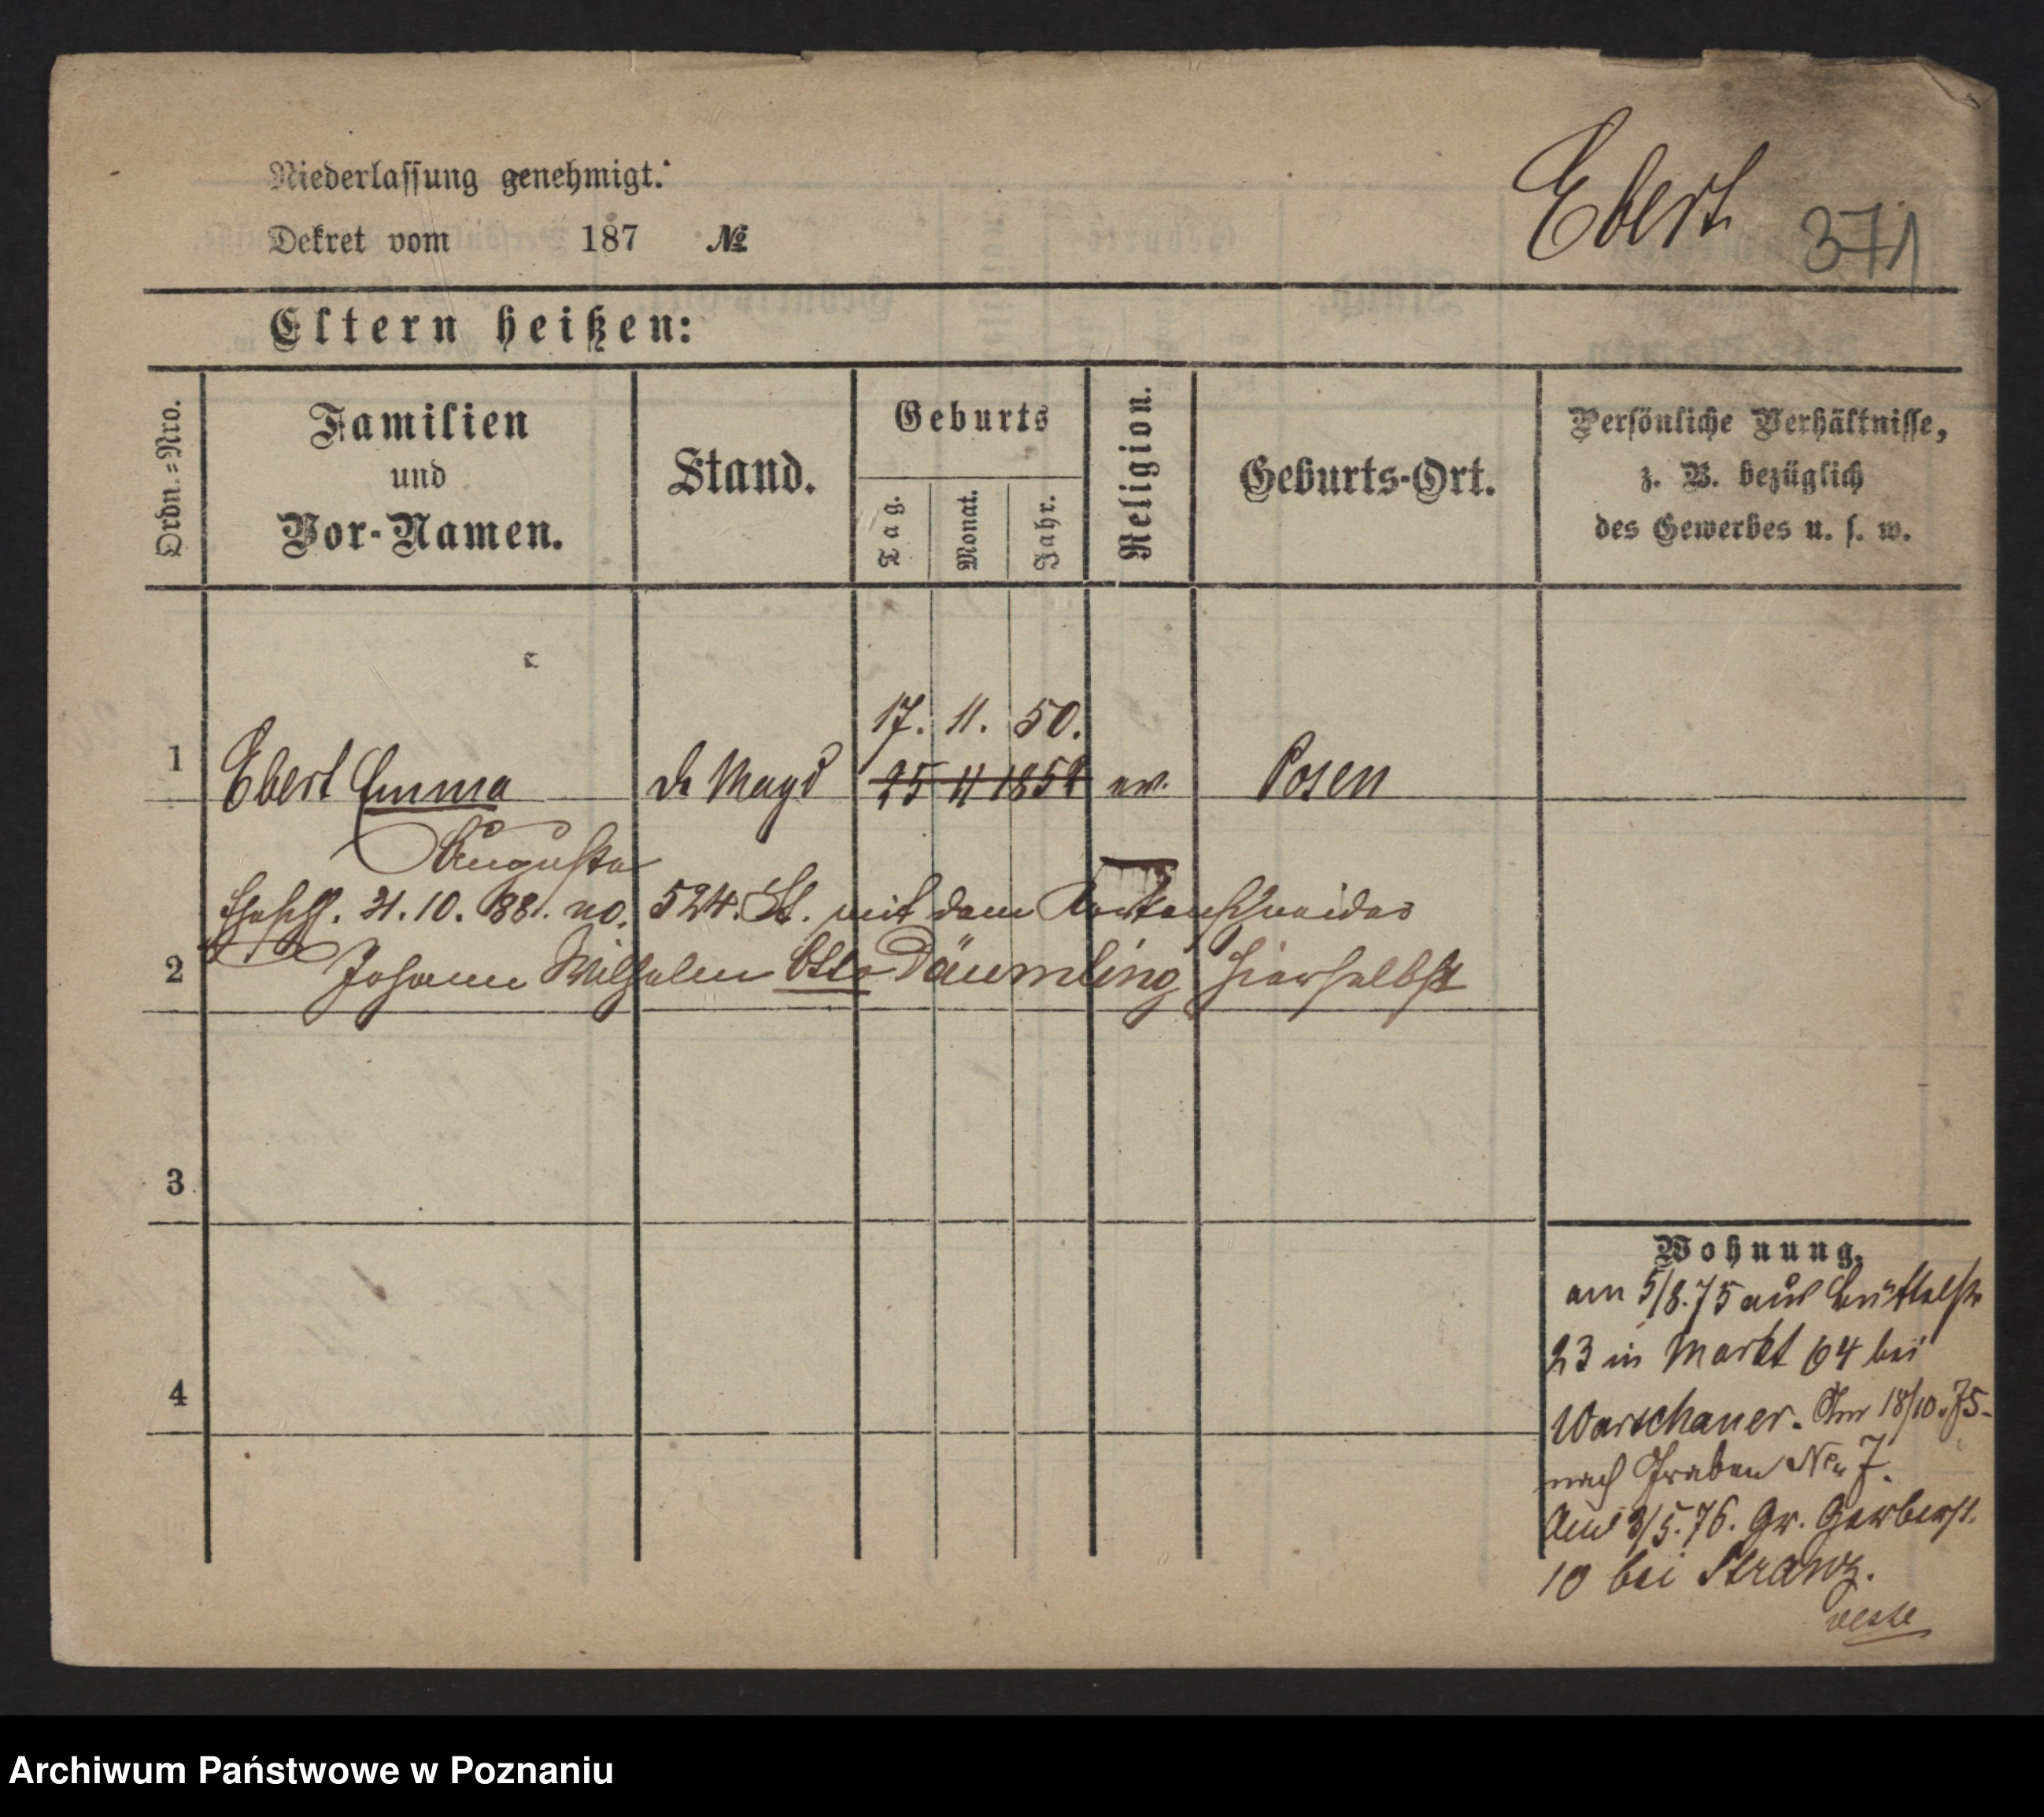 Niederlassung genehmigt.
Dekret vom 187 №
Ebert 371
Eltern heißen:
Ordn.=Nro.
Familien
und
Vor-Namen.
Stand.
Geburts
Tag.
Monat.
Jahr.
Religion.
Geburts-Ort.
Persönliche Verhältnisse,
z. B. bezüglich
des Gewerbes u. s. w.
17. 11. 50.
1 Ebert Emma Magd 25 11 1852 ev. Posen
Auguste
Ehesch. 31. 10. 88. no. 524. St. mit dem
2 Johann Wilhelm Otto Däumling hierselbst
3
4
Wohnung.
am 5/8.75 aus Büttelstr
23 in Markt 64 bei
Warschauer. Am 18/10.75.
nach Graben No. 7.
Am 3/5.76. Gr. Gerberst.
10 bei Stranz.
Archiwum Państwowe w Poznaniu